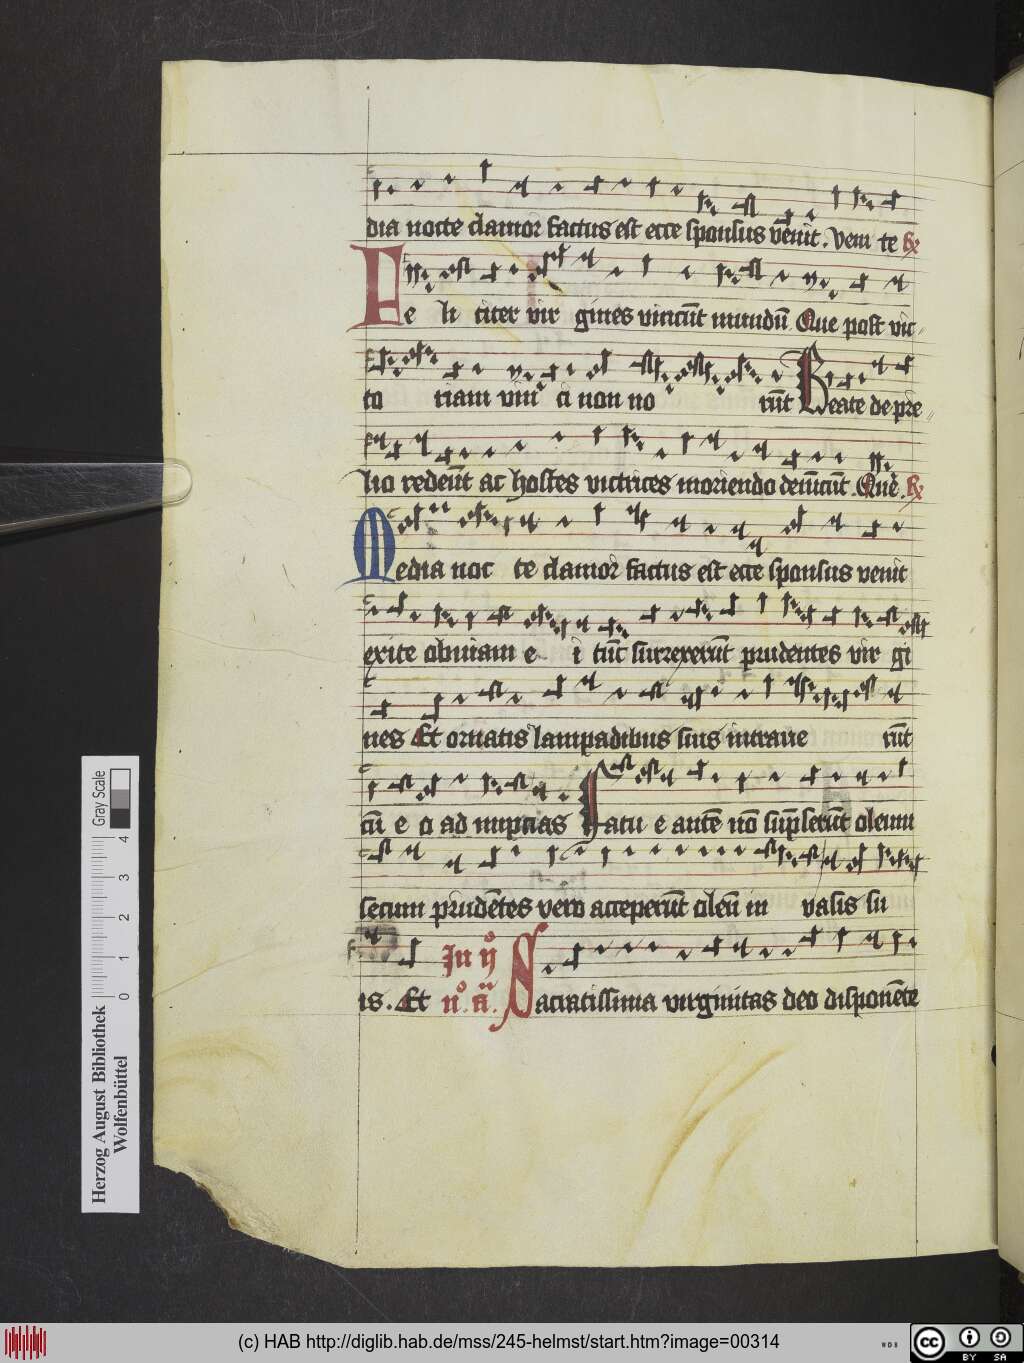 dia nocte clamor factus est ecce sponsus venit. Veni te R
Fe li citer vir gines vincūt mundū Que post vic
to riam vin ci non no rūt Beate de pre
lio redeūt ac hostes victrices moriendo deuīcūt. Que. R
Media noc te clamor factus est ecce sponsus venit
exite obuiam e i tūc surrexerūt prudentes vir gi
nes Et ornatis lampadibus suis intraue rūt
cū e o ad nuptias Fatu e autē nō sūpserūt oleum
secum prudētes vero acceperūt oleū in vasis su
is. Et In ij° n° a.
Sacratissima virginitas deo disponēte
Herzog August Bibliothek
Wolfenbüttel
0 1 2 3 4 Gray Scale
(c) HAB http://diglib.hab.de/mss/245-helmst/start.htm?image=00314
WDB
cc BY SA